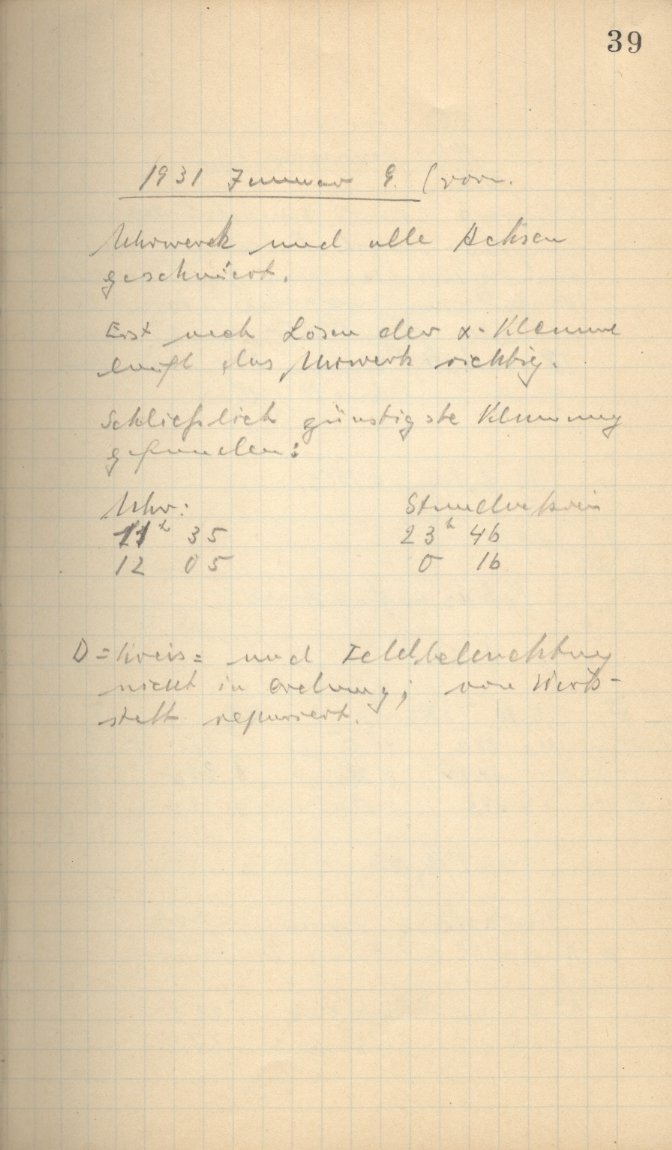 39
1931 Januar 9. (vorm.
Uhrwerk und alle Achsen
geschmiert.
Erst nach Lösen der α-Klemme
läuft das Uhrwerk richtig.
Schließlich günstigste Klemmung
gefunden:
Uhr: Stundenkreis
11h 35 23h 46
12 05 0 16
D=Kreis= und Feldbeleuchtung
nicht in Ordnung; von Werk-
statt repariert.